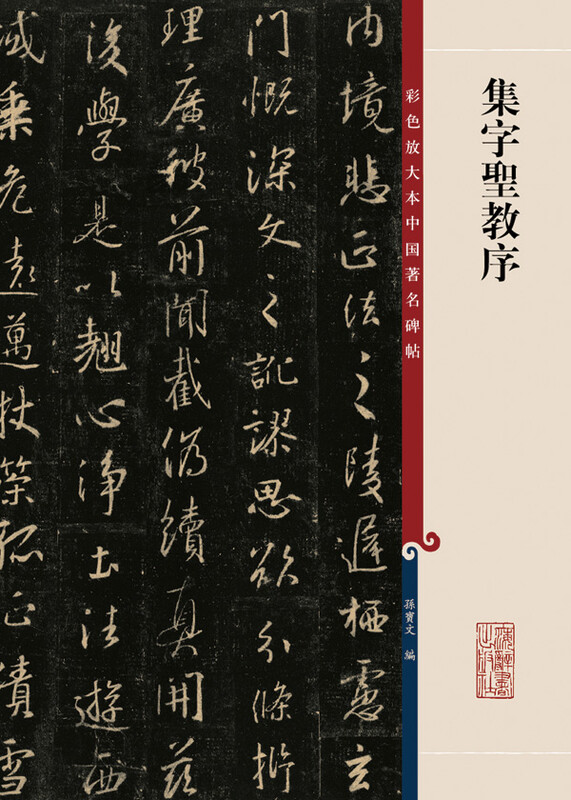 集字聖教序
彩色放大本中国著名碑帖
孫寶文 編
上海辭書出版社
内境悲正法之陵遲栖慮玄
門慨深文之訛謬思欲分條析
理廣彼前聞截偽續真開茲
後學是以翹心淨土法遊西
域乘危遠邁杖策孤征積雪